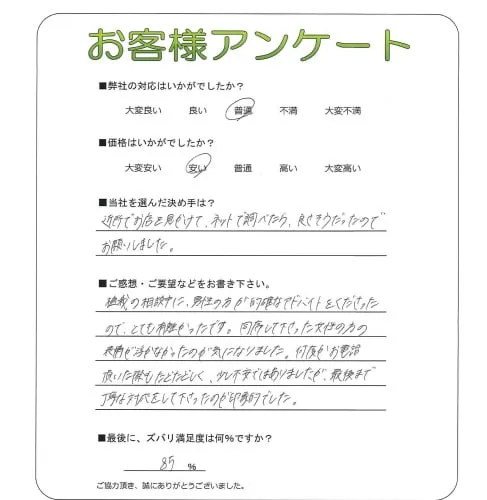 お客様アンケート
■弊社の対応はいかがでしたか？
大変良い 良い 普通 不満 大変不満
■価格はいかがでしたか？
大変安い 安い 普通 高い 大変高い
■当社を選んだ決め手は？
近所でお店を見かけて、ネットで調べたら、良さそうだったので
お願いしました。
■ご感想・ご要望などをお書き下さい。
の相談中に、男性の方が的確なアドバイトをくださった
ので、とても有難かったです。同席して下さった女性の方の
表情が浮かなかったのが気になりました。何度かお電話
頂いた際もたどたどしく、少し不安ではありましたが、最後まで
丁寧な対応をして下さったのが印象的でした。
■最後に、ズバリ満足度は何%ですか？
85 %
ご協力頂き、誠にありがとうございました。